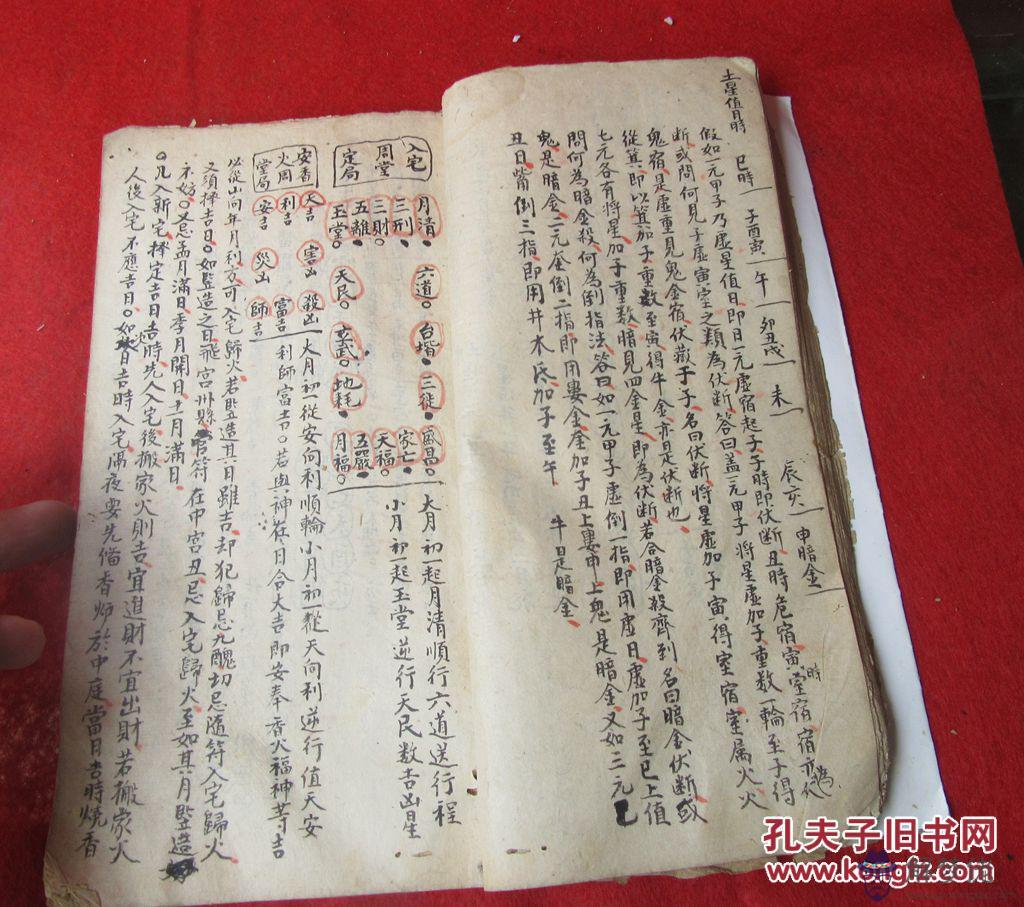 土星值日時 巳時 子酉寅 午 卯丑戌 未 辰亥 申暗金
假如一元甲子乃虛星值日即日一元虛宿起子子時即伏斷丑時危宿寅時室宿宿亦為伏
斷或問何見子虛寅室之類為伏斷答曰蓋一元甲子將星虛加子重数一輪至子得
鬼宿是虛重見鬼金宿伏藏于子名曰伏斷將星虛加子寅得室宿室属火火
從箕即以箕加子重数至寅得牛金亦是伏斷也
七元各有將星加子重数暗見四金星即為伏斷若合暗金殺齊到名曰暗金伏斷或
問何為暗金殺何為倒指法答曰如一元甲子虛倒一指即用虛日虛加子至巳上值
鬼是暗金二元奎倒二指即用婁金奎加子丑上婁申上鬼是暗金又如三元
丑日觜倒三指即用井木底加子至午 牛是暗金
入宅
周堂
定局
月清 六道 台堦 三徒 盛昌
三刑 家亡
三財 天福
五離
玉堂 天民 玄武 地耗 月福
大月初一起月清順行六道送行程
小月初一起玉堂逆行天民数吉凶星
安香
火周
堂局
天吉 害凶 殺凶
利吉 富吉
安吉 災凶 師吉
大月初一從安向利順輪小月初一從天向利逆行值天安
利師富吉若與神在日合大吉即安奉香火福神等吉
必從山向年月利方可入宅歸火若豎造其日雖吉却犯歸忌九醜切忌随符入宅歸火
又須擇吉日如豎造之日飛宮州縣官符在中宮丑忌入宅歸火至如其月豎造
不妨又忌孟月滿日季月開日十一月滿日
凡入新宅擇定吉日吉時先入入宅後搬家火則吉宜進財不宜出財若搬家火
人後入宅不應吉日如吉日吉時入宅隔夜要先備香師於中庭當日吉時燒香
孔夫子旧书网
www.kongfz.com